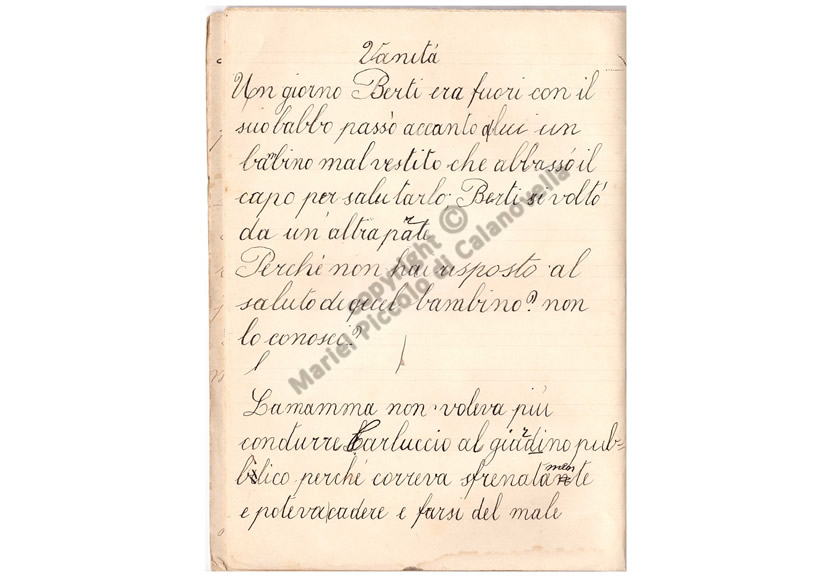 Vanitá
Un giorno Berti era fuori con il
suo babbo passò accanto a lui un
bambino mal vestito che abbassó il
capo per salutarlo. Berti si voltó
da un'altra parte
Perché non hai risposto al
saluto di quel bambino? non
lo conosci?
La mamma non voleva piú
condurre Carluccio al giardino pub=
blico perché correva sfrenatamente
e poteva cadere e farsi del male
copyright ©
Mariel Piccolo di Calanovella